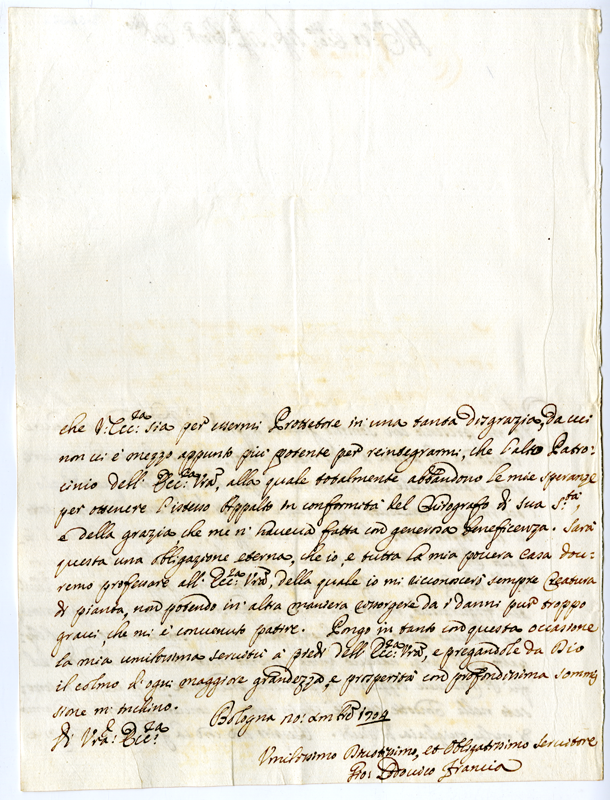 che V. Ecc:za sia per essermi Protettore in una tanta disgrazia, da cui
non ci è mezzo appunto più potente per reintegrarmi, che l'alto Patro-
cinio dell' Ecc:za Vra, alla quale totalmente abbandono le mie speranze
per ottenere l'istesso Appalto in conformità del Chirografo di sua S.tà,
e della grazia che me n' haveva fatta con generosa beneficenza. Sarà
questa una obligazione eterna, che io, e tutta la mia povera casa dov-
remo professare all' Ecc:za Vra, della quale io mi riconoscerò sempre Creatura
di pianta, non potendo in altra maniera risorgere da i danni pur troppo
gravi, che mi è convenuto patire. Pongo in tanto con questa occasione
la mia umilissima servitù a piedi dell' Ecc:za Vra, e pregandole da Dio
il colmo d'ogni maggiore grandezza, e prosperità con profondissima sommis
sione m' inchino.
Bologna 1704
di Vra. Ecc:za
Umilissimo Devotissimo, et Obligatissimo Servitore
Gio: Francia